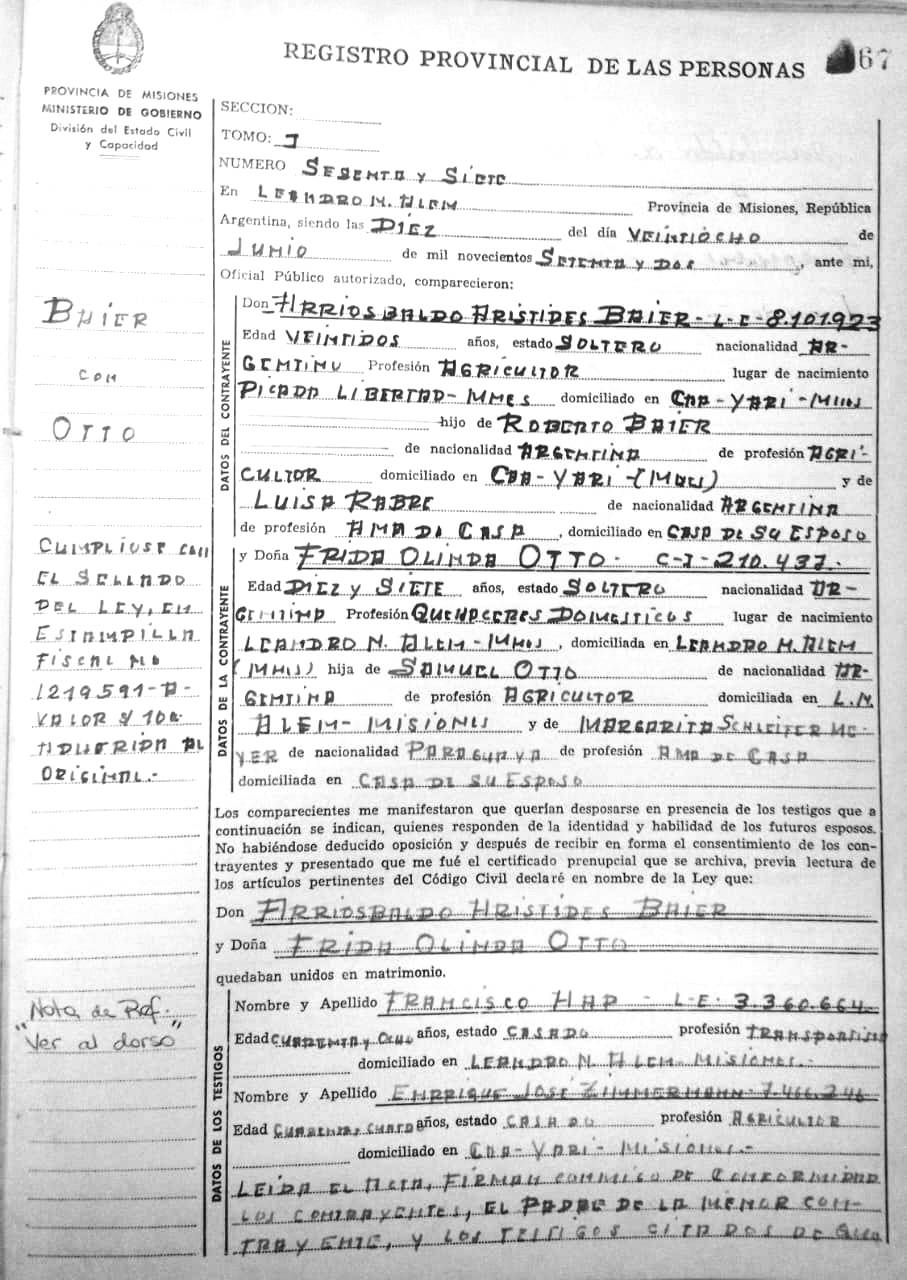 REGISTRO PROVINCIAL DE LAS PERSONAS
67
PROVINCIA DE MISIONES
MINISTERIO DE GOBIERNO
División del Estado Civil
y Capacidad
SECCION:
TOMO: I
NUMERO SESENTA Y SIETE
En LEANDRO N. ALEM Provincia de Misiones, República
Argentina, siendo las DIEZ del día VEINTIOCHO de
JUNIO de mil novecientos SETENTA Y DOS, ante mi,
Oficial Público autorizado, comparecieron:
BAIER
CON
OTTO
CUMPLIOSE CON
EL SELLADO
DEL LEY, EN
ESTAMPILLA
FISCAL Nº
1219591-A-
VALOR $ 10
ADHERIDA AL
ORIGINAL.-
"Nota de Ref.
Ver al dorso"
DATOS DEL CONTRAYENTE
Don ARRIOSBALDO ARISTIDES BAIER - L-E- 8.101.923
Edad VEINTIDOS años, estado SOLTERO nacionalidad AR-
GENTINA Profesión AGRICULTOR lugar de nacimiento
PICADA LIBERTAD - MNES domiciliado en CAA-YARI-MNES
hijo de ROBERTO BAIER
de nacionalidad ARGENTINA de profesión AGRI-
CULTOR domiciliado en CAA-YARI-(MNES) y de
LUISA RABRE de nacionalidad ARGENTINA
de profesión AMA DE CASA, domiciliado en CASA DE SU ESPOSO
DATOS DE LA CONTRAYENTE
y Doña FRIDA OLINDA OTTO - C-I-210.437.
Edad DIEZ Y SIETE años, estado SOLTERO nacionalidad AR-
GENTINA Profesión QUEHACERES DOMESTICOS lugar de nacimiento
LEANDRO N. ALEM-MNES, domiciliada en LEANDRO N. ALEM
(MNES) hija de SAMUEL OTTO de nacionalidad AR-
GENTINA de profesión AGRICULTOR domiciliada en L.N.
ALEM-MISIONES y de MARGARITA SCHLEIFER ME-
YER de nacionalidad PARAGUAYA de profesión AMA DE CASA
domiciliada en CASA DE SU ESPOSO
Los comparecientes me manifestaron que querían desposarse en presencia de los testigos que a
continuación se indican, quienes responden de la identidad y habilidad de los futuros esposos.
No habiéndose deducido oposición y después de recibir en forma el consentimiento de los con-
trayentes y presentado que me fué el certificado prenupcial que se archiva, previa lectura de
los artículos pertinentes del Código Civil declaré en nombre de la Ley que:
Don ARRIOSBALDO ARISTIDES BAIER
y Doña FRIDA OLINDA OTTO
quedaban unidos en matrimonio.
DATOS DE LOS TESTIGOS
Nombre y Apellido FRANCISCO HAP - L-E- 3.360.664.
Edad CUARENTA Y OCHO años, estado CASADO profesión TRANSPORTISTA
domiciliado en LEANDRO N. ALEM MISIONES.-
Nombre y Apellido ENRRIQUE JOSÉ ZIMMERMANN- 7.466.246
Edad CUARENTA Y CUATRO años, estado CASADO profesión AGRICULTOR
domiciliado en CAA-YARI-MISIONES.-
LEIDA EL ACTA, FIRMAN CONMIGO DE CONFORMIDAD
LOS CONTRAYENTES, EL PADRE DE LA MENOR CON-
TRAYENTE, Y LOS TESTIGOS CITADOS DE QUE